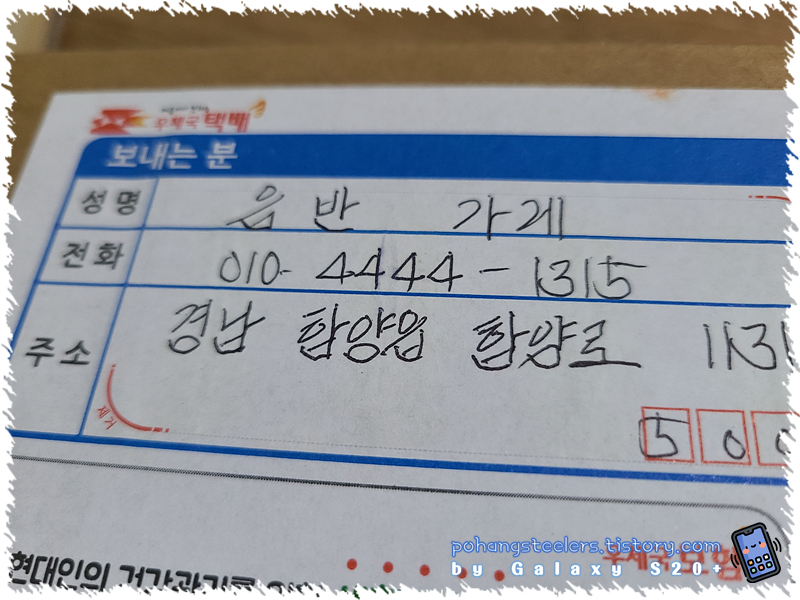 우체국 택배
보내는 분
성 명 음 반 가 게
전 화 010- 4444 - 1315
주 소 경남 함양읍 함양로 1131
제거
5 0 0
현대인의 건강관리를
우체국보험
pohangsteelers.tistory.com
by Galaxy S20+